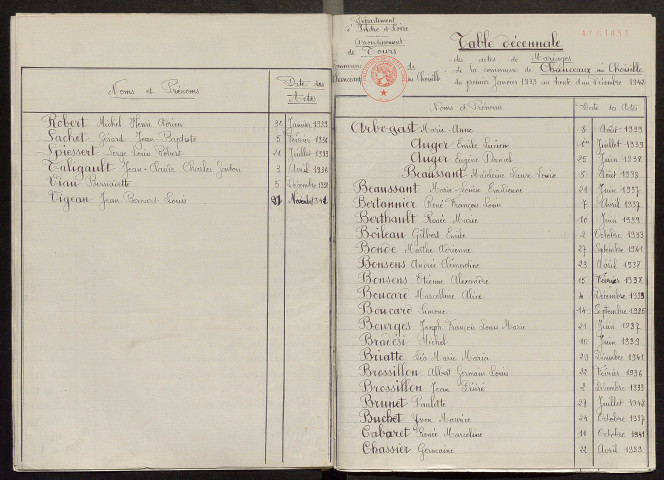 Noms et Prénoms Date des Actes
Robert Michel Henri Adrien 31 Janvier 1939
Sachet Gérard Jean-Baptiste 5 Février 1936
Spiessert Serge Louis Robert 21 Juillet 1939
Taligault Jean-Claude Charles 3 Avril 1936
Viau Bernadette 5 Décembre 1938
Vigeau Jean Bernard Louis Novembre
Département
d'Indre et Loire
Arrondissement
de Tours
Commune de
Chanceaux sur Choisille
Table décennale
des actes de Mariages
de la commune de Chanceaux sur Choisille
du premier Janvier 1933 au trente et un Décembre 1942
Noms et Prénoms Date des Actes
Arbogast Marie Anne 8 Août 1939
Auger Emile Lucien Juillet 1939
Auger Eugène Daniel 25 Juin 1938
Beaussant Madeleine 8 Août 1938
Beaussant Marie-Louise Emilienne 21 Juin 1937
Bertannier René François Louis 7 Avril 1937
Berthault Renée Marie 10 Juin 1939
Boileau Gilbert Emile 2 Octobre 1933
Bonde Marthe Adrienne 27 Septembre 1941
Bonsens Andrée Clémentine 23 Avril 1938
Bonsens Etienne Alexandre 15 Février 1938
Boucard Marcelline Alice 4 Décembre 1939
Boucard Simone 14 Septembre 1936
Bourges Joseph François Louis Marie 21 Juin 1937
Bradési Michel 10 Juin 1939
Briatte Marie Maria 29 Décembre 1941
Brossillon Albert Germain Louis 22 Février 1936
Brossillon Jean Désiré 2 Décembre 1939
Brunet Paulette 27 Juillet 1942
Buchet Yvon Maurice 24 Octobre 1937
Cabaret Renée Marceline 11 Octobre 1941
Chassier Germaine 22 Avril 1939